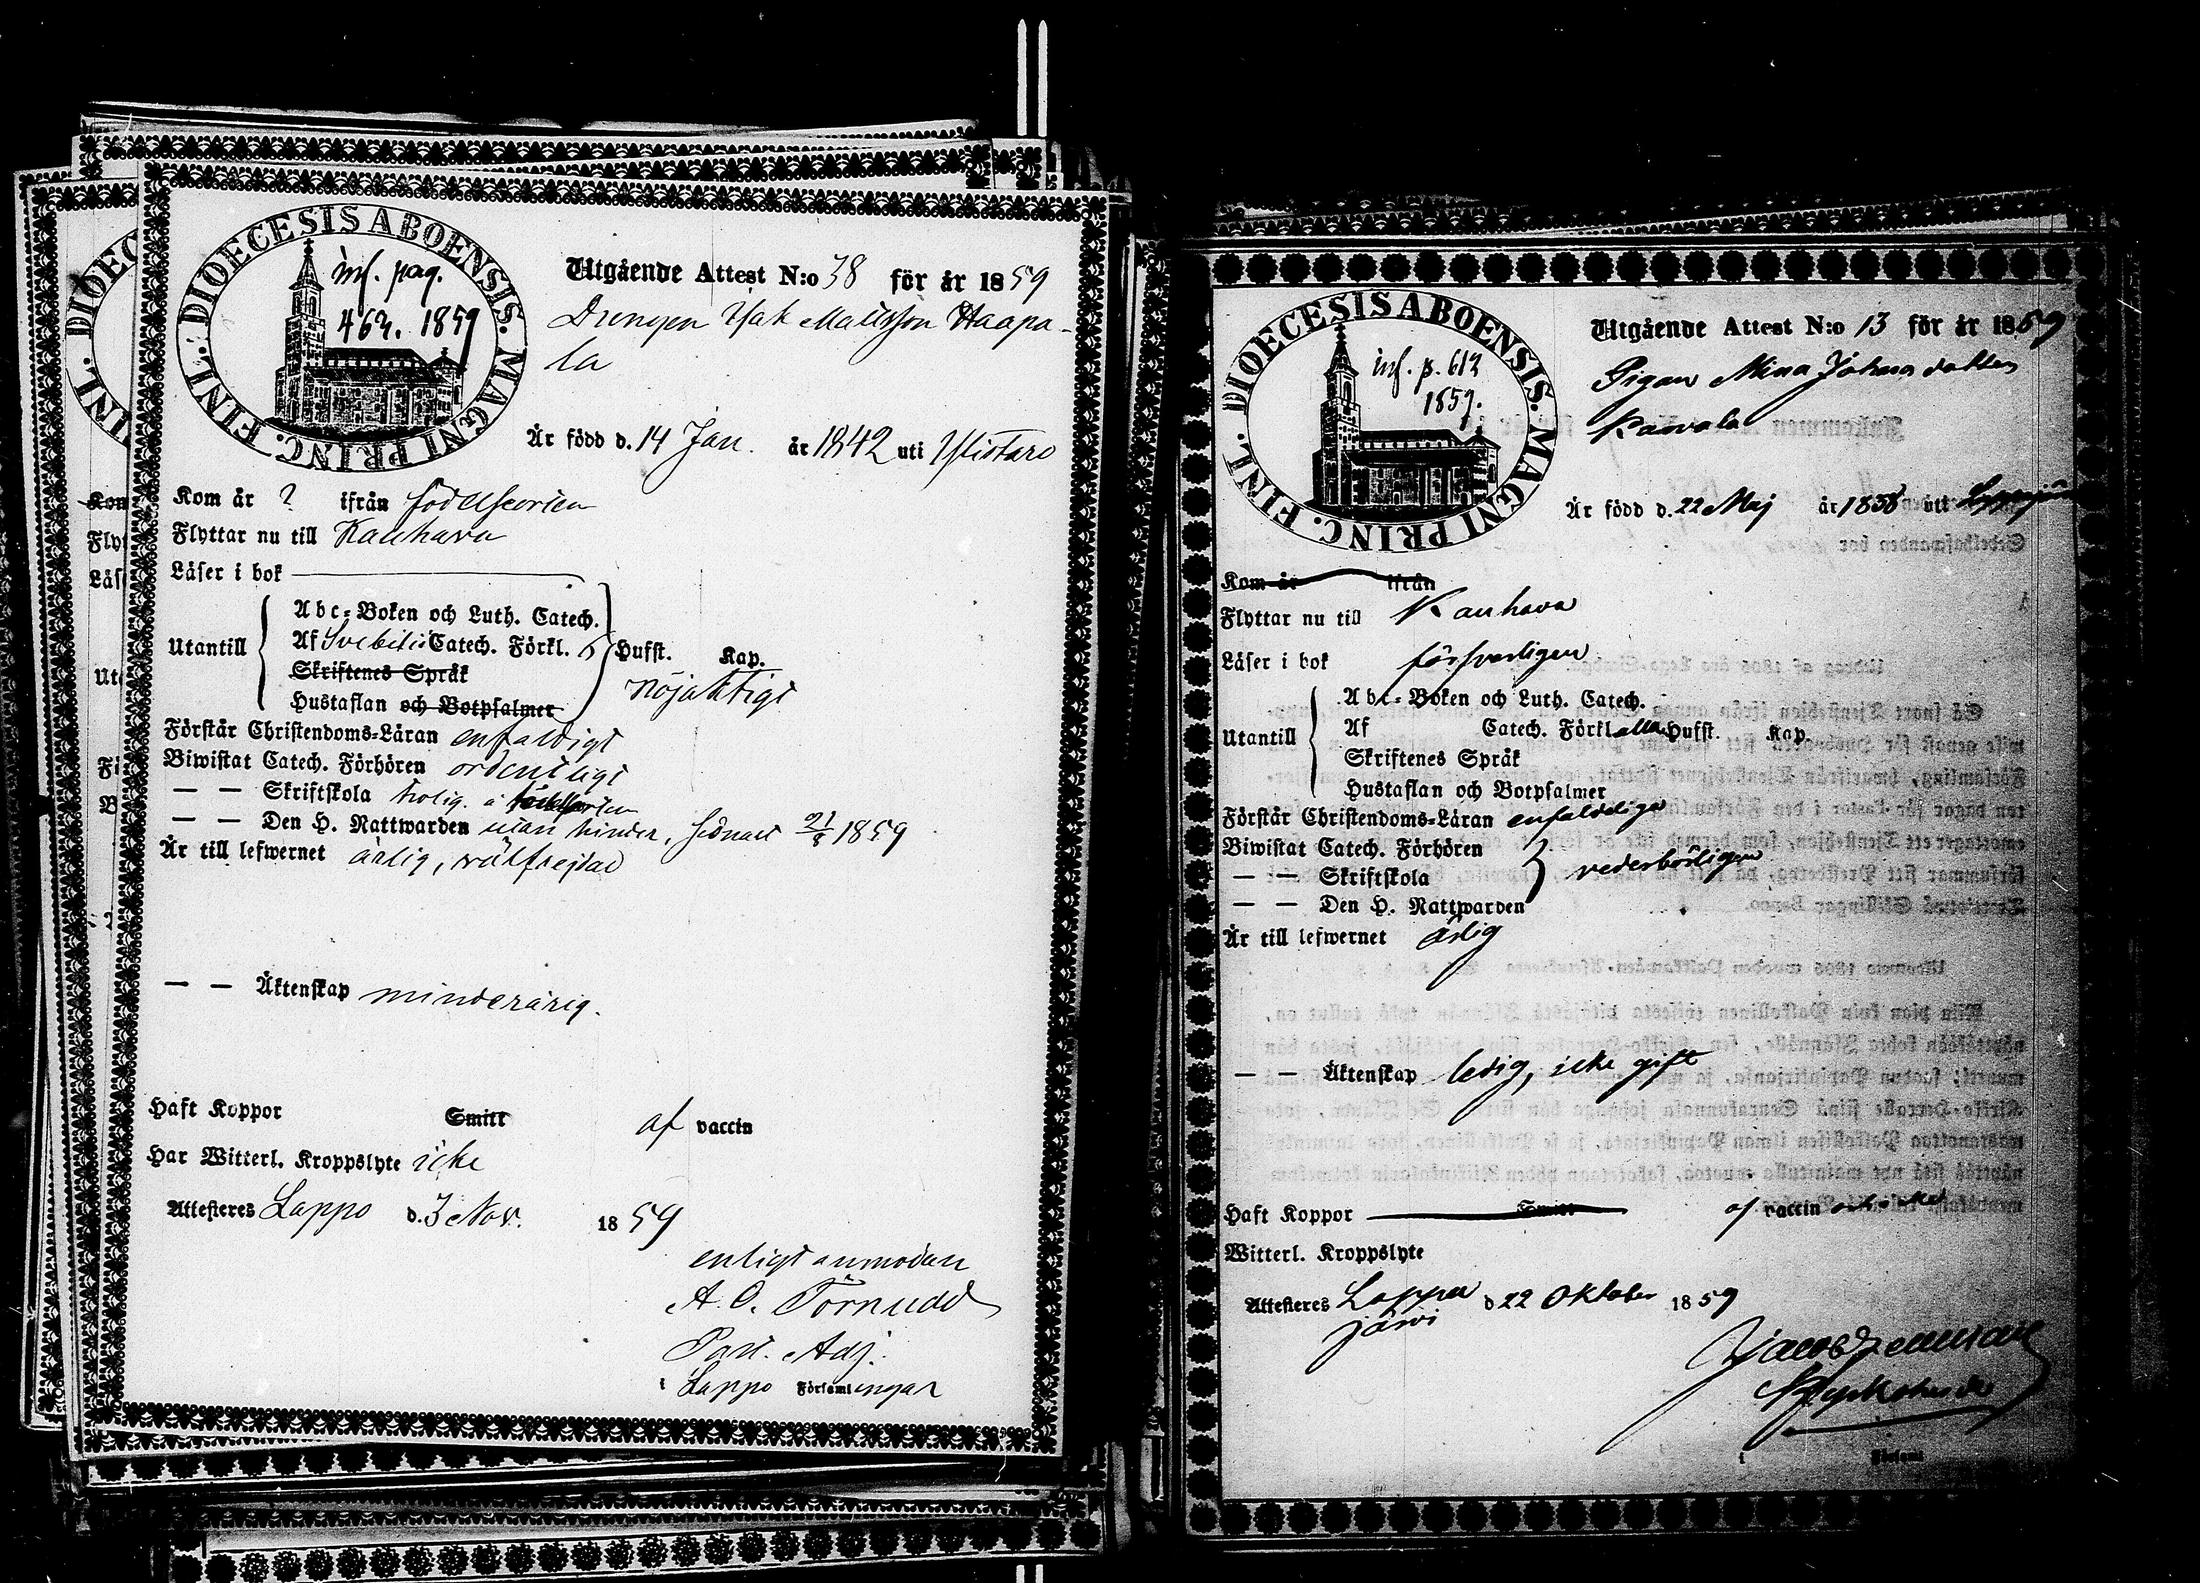 DIOECESIS ABOENSIS. MAGNI PRINC. FINL.
inf. pag.
463. 1859
Utgående Attest N:o 38 för år 1859
Drengen Isak Mattsson Haapa-
la
Är född d. 14 Jan. år 1842 uti Ylistaro
Kom år ? ifrån födelseorten
Flyttar nu till Kauhava
Läser i bok
Utantill
Abc-Boken och Luth. Catech.
Af Svebilii Catech. Förkl. Hufst. Kap.
Skriftenes Språk
nöjaktigt
Hustaflan och Botpsalmer
Förstår Christendoms-Läran enfaldigt
Biwistat Catech. Förhören ordentligt
— — Skriftskola trolig. å födelseorten
— — Den H. Nattwarden utan hinder, sednast 21/8 1859
Är till lefwernet ärlig, välfrejdad
— — Äktenskap minderårig.
Haft Koppor Smitt af vaccin
Har Witterl. Kroppslyte icke
Attesteres Lappo d. 3 Nov. 1859
enligt anmodan
A. O. Törnudd
Past. Adj.
i Lappo Församlingar
DIOECESIS ABOENSIS. MAGNI PRINC. FINL.
inf. p. 612
1859.
Utgående Attest N:o 13 för år 1859
Pigan Mina Johansdotter
Är född d. 22 Maj år 1838 uti
Kom år ifrån
Flyttar nu till Kauhava
Läser i bok försvarligen
Utantill
Abc-Boken och Luth. Catech.
Af Catech. Förkl. alla Hufst. Kap.
Skriftenes Språk
Hustaflan och Botpsalmer
Förstår Christendoms-Läran enfaldeliga
Biwistat Catech. Förhören
— — Skriftskola vederbörligen
— — Den H. Nattwarden
Är till lefwernet ärlig
— — Äktenskap ledig, icke gift
Haft Koppor Smitt af vaccin
Witterl. Kroppslyte
Attesteres Lappa
järvi d 22 Oktober 1859
Kyrkoherde
i Församl